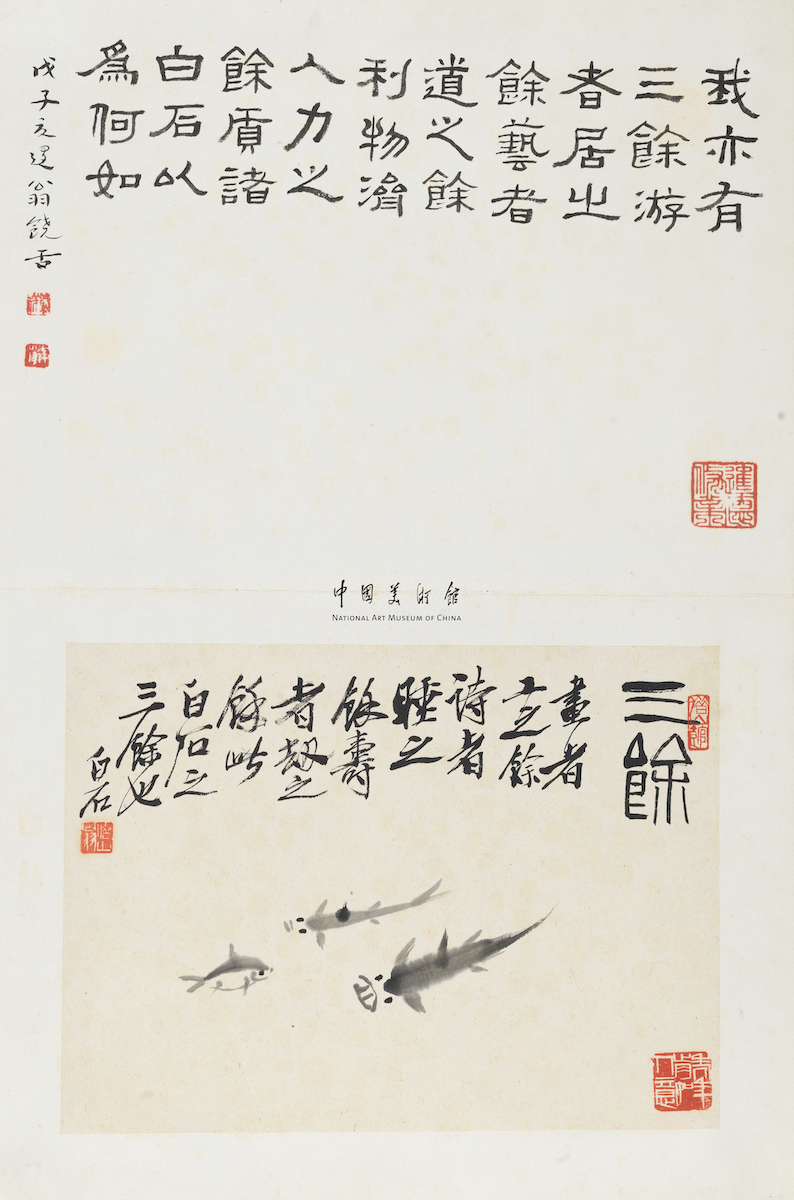 我亦有
三餘游
者居之
餘藝者
道之餘
利物濟
人力之
餘質諸
白石以
爲何如
戊子 遲翁饒舌
進德修業
中国美術館
NATIONAL ART MUSEUM OF CHINA
三餘
畫者
工之餘
詩者
睡之
餘壽
者劫之
餘此
白石之
三餘也
白石